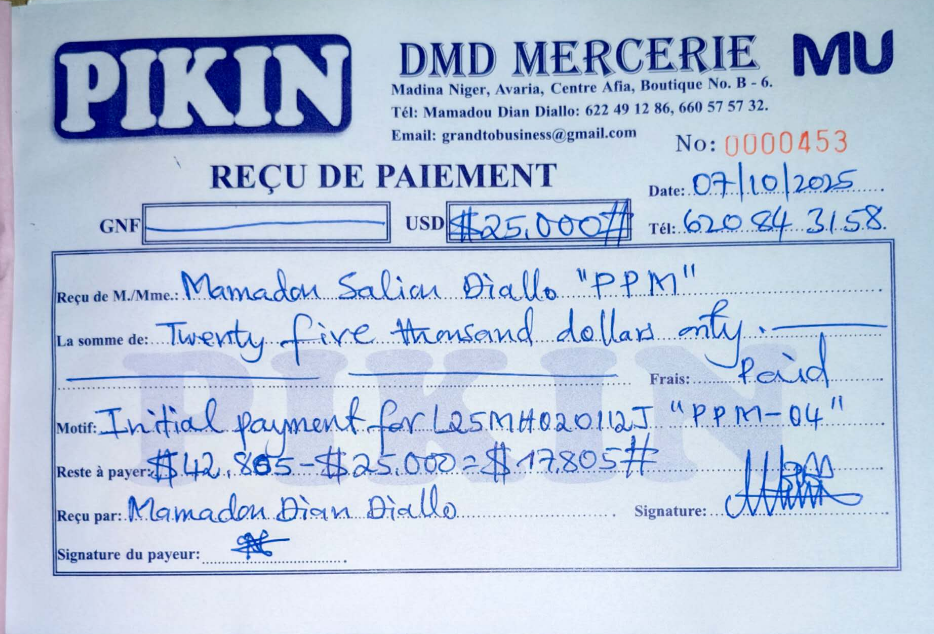 PIKIN
DMD MERCERIE MU
Madina Niger, Avaria, Centre Afia, Boutique No. B - 6.
Tél: Mamadou Dian Diallo: 622 49 12 86, 660 57 57 32.
Email: grandtobusiness@gmail.com
No: 0000453
REÇU DE PAIEMENT
Date: 07/10/2025
GNF USD $25,000#
Tél: 620 84 31 58.
Reçu de M./Mme.: Mamadou Saliou Diallo "PPM"
La somme de: Twenty five thousand dollars only.
PIKIN
Frais: Paid
Motif: Initial payment for L25MH020112J "PPM-04"
Reste à payer: $42,805-$25,000=$17805#
Reçu par: Mamadou Dian Diallo Signature:
Signature du payeur: